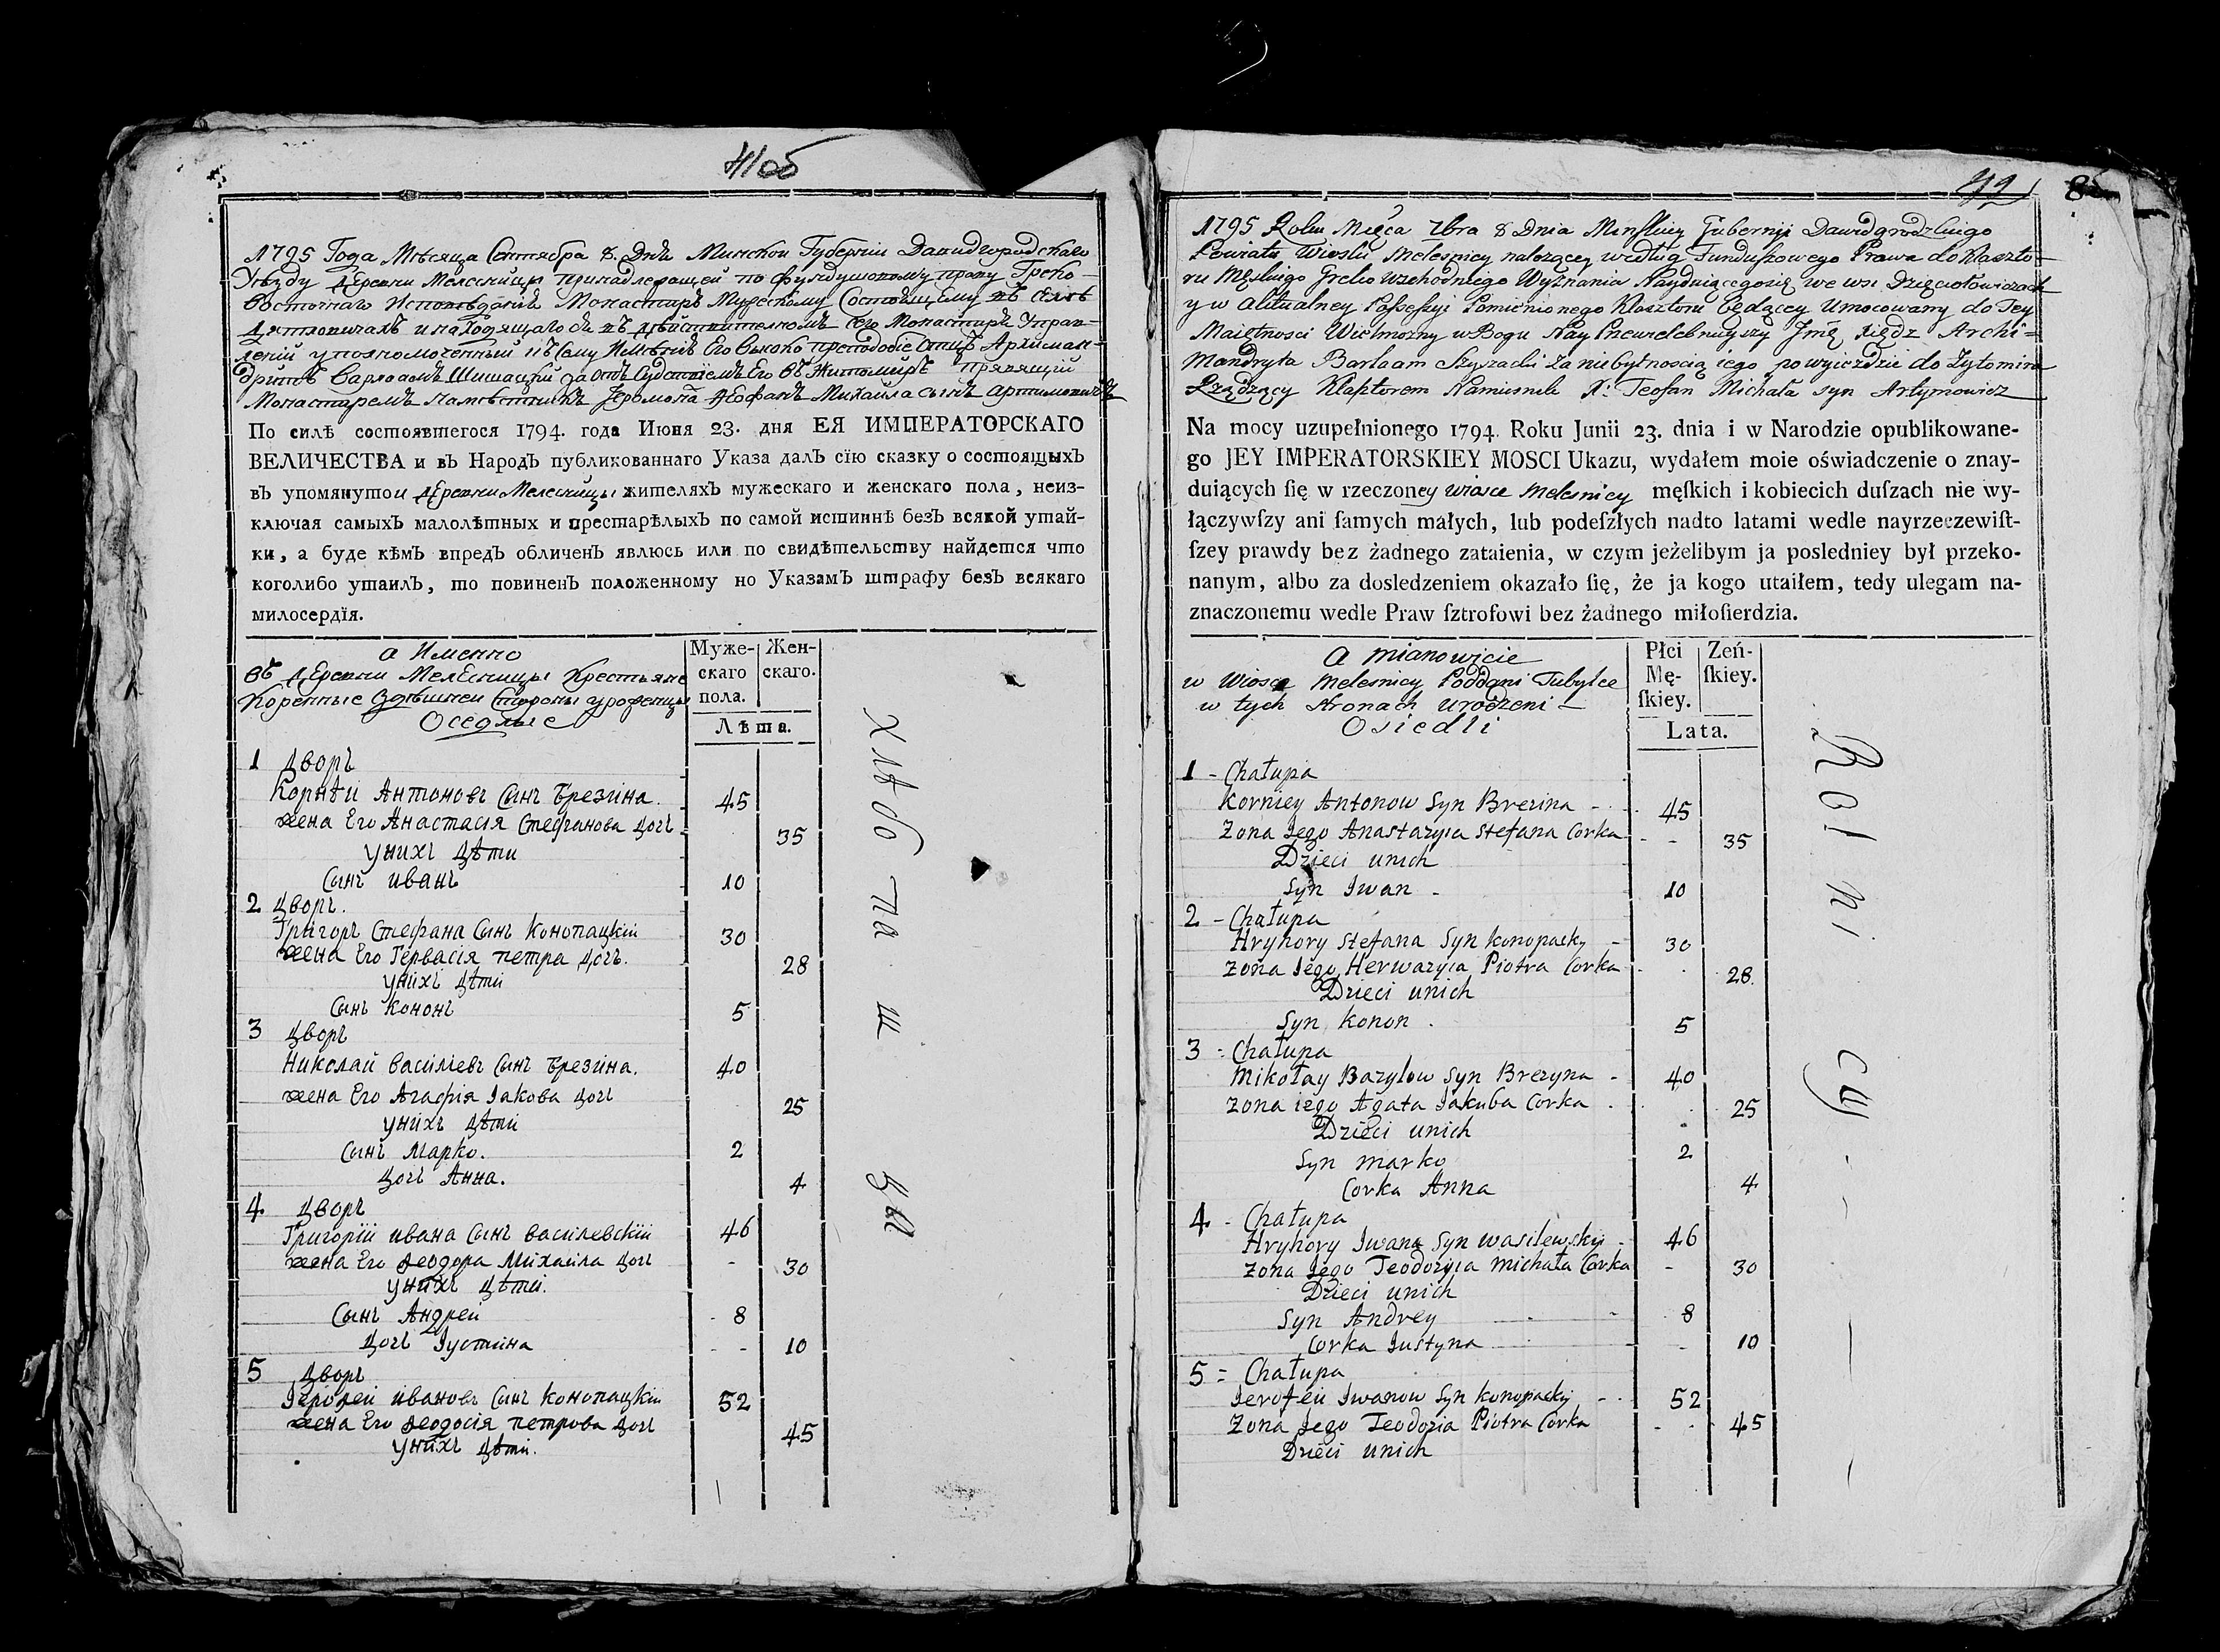 41об
1795 Года Мѣсяца Сентября 8. Дня Минской Губерніи Давидгородскаго
Уѣзду Деревни Мелесницы принадлежащей по фундушовому праву Греко-
Восточнаго Исповѣданія Монастырю Мужескому Состоящему въ Селѣ
Дятловичахъ и находящагося въ дѣйствителномъ сего Монастыря Управ-
леніи уполномоченный къ Сему Имѣнію Его Высоко преподобіе Отцъ Архиман-
дритъ Варлаамъ Шишацкій за Отъ Судствіемъ Его въ Житомиръ правящій
Монастыремъ намѣстникъ Іеромона Ѳеофанъ Михаила сынъ Артимовичъ
По силѣ состоявшегося 1794. года Июня 23. дня ЕЯ ИМПЕРАТОРСКАГО
ВЕЛИЧЕСТВА и въ Народъ публикованнаго Указа далъ сїю сказку о состоящыхъ
въ упомянутои деревни Мелесницы жителяхъ мужескаго и женскаго пола, неиз-
ключая самыхъ малолѣтныхъ и престарѣлыхъ по самой истиннѣ безъ всякой утай-
ки, а буде кѣмъ впредъ обличенъ явлюсь или по свидѣтельству найдется что
коголибо утаилъ, то повиненъ положенному по Указамъ штрафу безъ всякаго
милосердїя.
а Именно
въ деревни Мелесницы Крестьяне
Коренные здѣшней Стороны уроженцы
Оседлые
Муже-
скаго
пола.
Жен-
скаго.
Лѣта.
1 дворъ
Корнѣй Антоновъ Сынъ Брезина. 45
жена Его Анастасія Стефанова дочь 35
у нихъ дѣти
Сынъ иванъ 10
2 дворъ.
Григоръ Стефана Сынъ Конопацкій 30
жена Его Гервасія петра дочь. 28
у нихъ дѣти
Сынъ Кононъ 5
3 дворъ
Николай Василіевъ Сынъ Брезина. 40
жена Его Агафія Іакова дочь 25
у нихъ дѣти
Сынъ Марко. 2
дочь Анна. 4
4 дворъ
Григорій ивана Сынъ василевскій 46
жена Его Ѳеодора Михаила дочь - 30
у нихъ дѣти.
Сынъ Андрей - 8
дочь Іустина - - 10
5 дворъ
Іероѳей ивановъ Сынъ Конопацкій 52
жена Его Ѳеодосія петрова дочь 45
у нихъ дѣти.
Хлѣбопашцы
8
1795 Roku Mięca 7bra 8 Dnia Minskiey Gubernij Dawidgrodzkiego
Powiatu Wioski Melesnicy nalezącey według Funduszowego Prawa do Klaszto-
ru Męskiego Greko Wschodniego Wyznania Nayduiącegosię we wsi Dzięciołowiczach
y w Aktualney Possessyi Pomienionego Klasztoru będącey Umocowany do Tey
Maiętnosci Wielmożny w Bogu Nay Przewielebnieyszy Jmć Xiądz Archi=
Mandryta Barlaam Szyszacki Za niebytnoscią iego po wyieździe do Zytomira
Rządzący Klasztorem Namiesnik X: Teofan Michała syn Artymowicz
Na mocy uzupełnionego 1794. Roku Junii 23. dnia i w Narodzie opublikowane-
go JEY IMPERATORSKIEY MOSCI Ukazu, wydałem moie oświadczenie o znay-
duiących ſię w rzeczoney wiosce Melesnicy męſkich i kobiecich duſzach nie wy-
łączywſzy ani ſamych małych, lub podeſzłych nadto latami wedle nayrzeczewiſt-
ſzey prawdy bez żadnego zataienia, w czym jeżelibym ja posledniey był przeko-
nanym, albo za dosledzeniem okazało ſię, że ja kogo utaiłem, tedy ulegam na-
znaczonemu wedle Praw ſztrofowi bez żadnego miłoſierdzia.
a mianowicie
w Wiosce Melesnicy Poddani Tubylce
w tych Stronach Urodzeni
Osiedli
Płci
Mę-
ſkiey.
Zeń-
ſkiey.
Lata.
1 - Chałupa
Korniey Antonow Syn Brezina - 45
Zona Jego Anastazyia Stefana Corka - - 35
Dzieci unich
Syn Iwan - 10
2 - Chałupa
Hryhory Stefana Syn Konopacky - 30
Zona Jego Herwazyia Piotra Corka 28.
Dzieci unich
Syn Konon. 5
3 - Chałupa
Mikołay Bazylow Syn Brezyna - 40
Zona iego Agata Jakuba Corka 25
Dzieci unich
Syn Marko 2
Corka Anna 4
4 - Chałupa
Hryhory Iwana Syn Wasilewskij - 46
Zona Jego Teodozyia Michała Corka - 30
Dzieci unich
Syn Andrey - 8
Corka Justyna 10
5 = Chałupa
Jerofeii Iwanow Syn Konopackij - 52
Zona Jego Teodozia Piotra Corka 45
Dzieci unich
Rolnicy